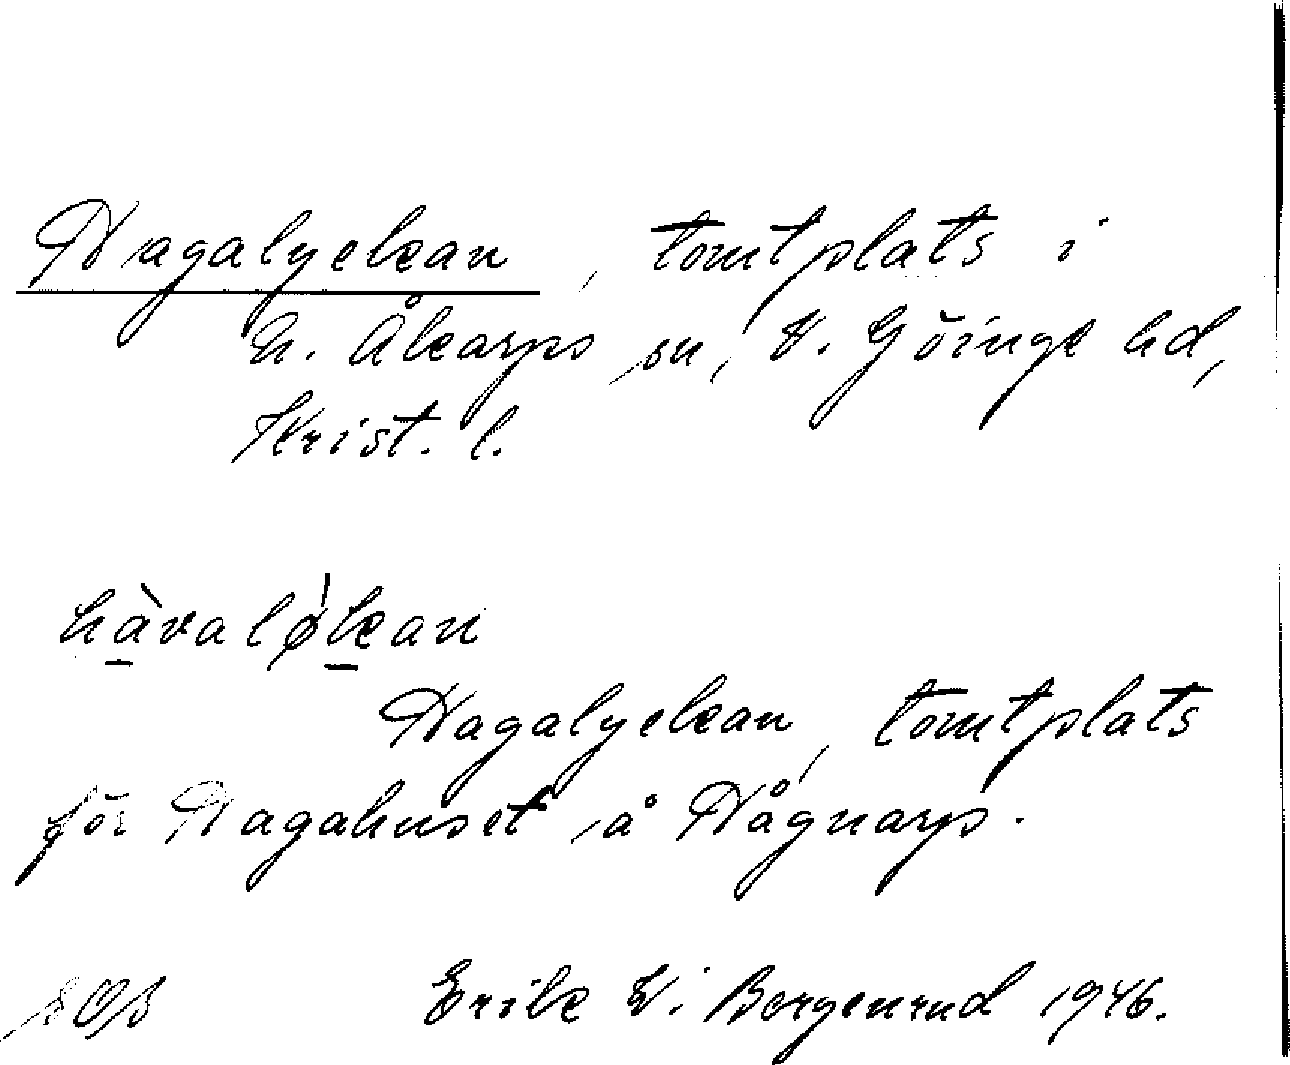 Hagalyckan, tomtplats i
N. Åkarps sn, V. Göinge hd,
Krist. l.
hàvaløkan
Hagalyckan, tomtplats
för Hagahuset å Hågnarp.
Erik W. Bergenrud 1946.